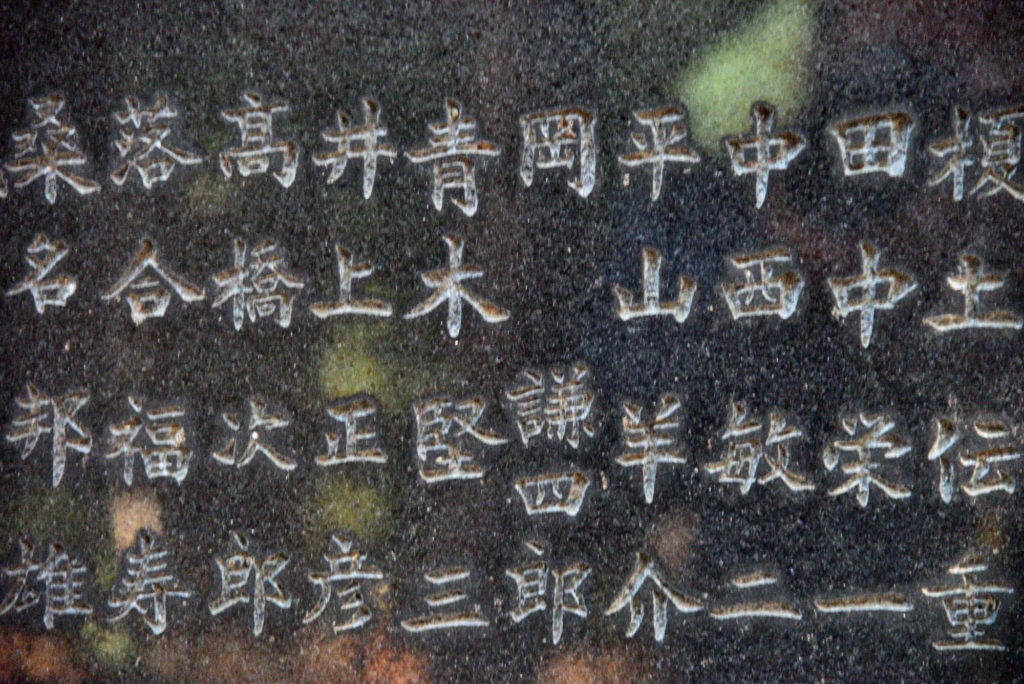 榎土伝重
田中栄一
中西敏二
平山羊介
岡謙四郎
青木堅三
井上正彦
高橋次郎
落合福寿
桑名邦雄